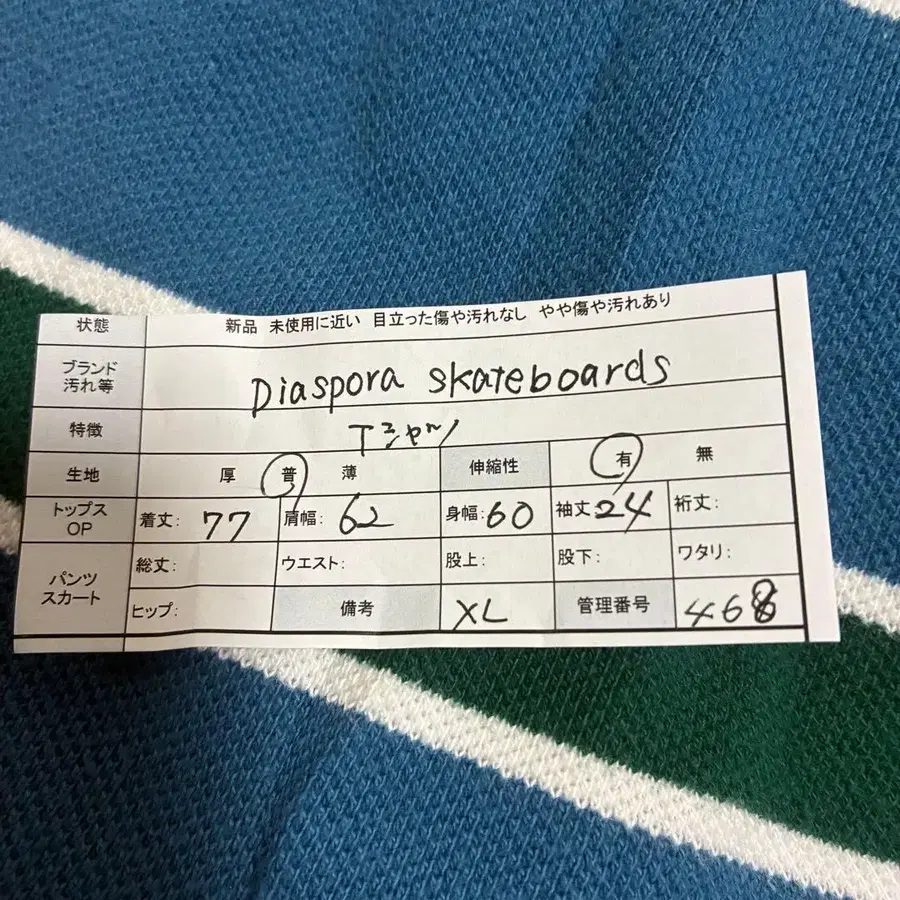 状態 新品 未使用に近い 目立った傷や汚れなし やや傷や汚れあり
ブランド
汚れ等 Diaspora skateboards
特徴 Tシャツ
生地 厚 普 薄 伸縮性 有 無
トップス
OP 着丈: 77 肩幅: 62 身幅: 60 袖丈 24 裄丈:
パンツ
スカート 総丈: ウエスト: 股上: 股下: ワタリ:
ヒップ: 備考 XL 管理番号 468